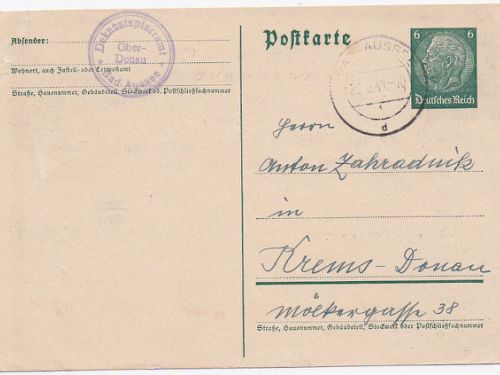 Absender:
Wohnort, auch Zustell- oder Leitpostamt
Straße, Hausnummer, Gebäudeteil, Stockwerk od. Postschließfachnummer
Dekanatspfarramt
Ober-
Donau
Bad Aussee
Postkarte
BAD AUSSEE
d
6 6
Deutsches Reich
Herrn
Anton Zahradnik
in
Krems-Donau
Mölkergasse 38
Straße, Hausnummer, Gebäudeteil, Stockwerk oder Postschließfachnummer